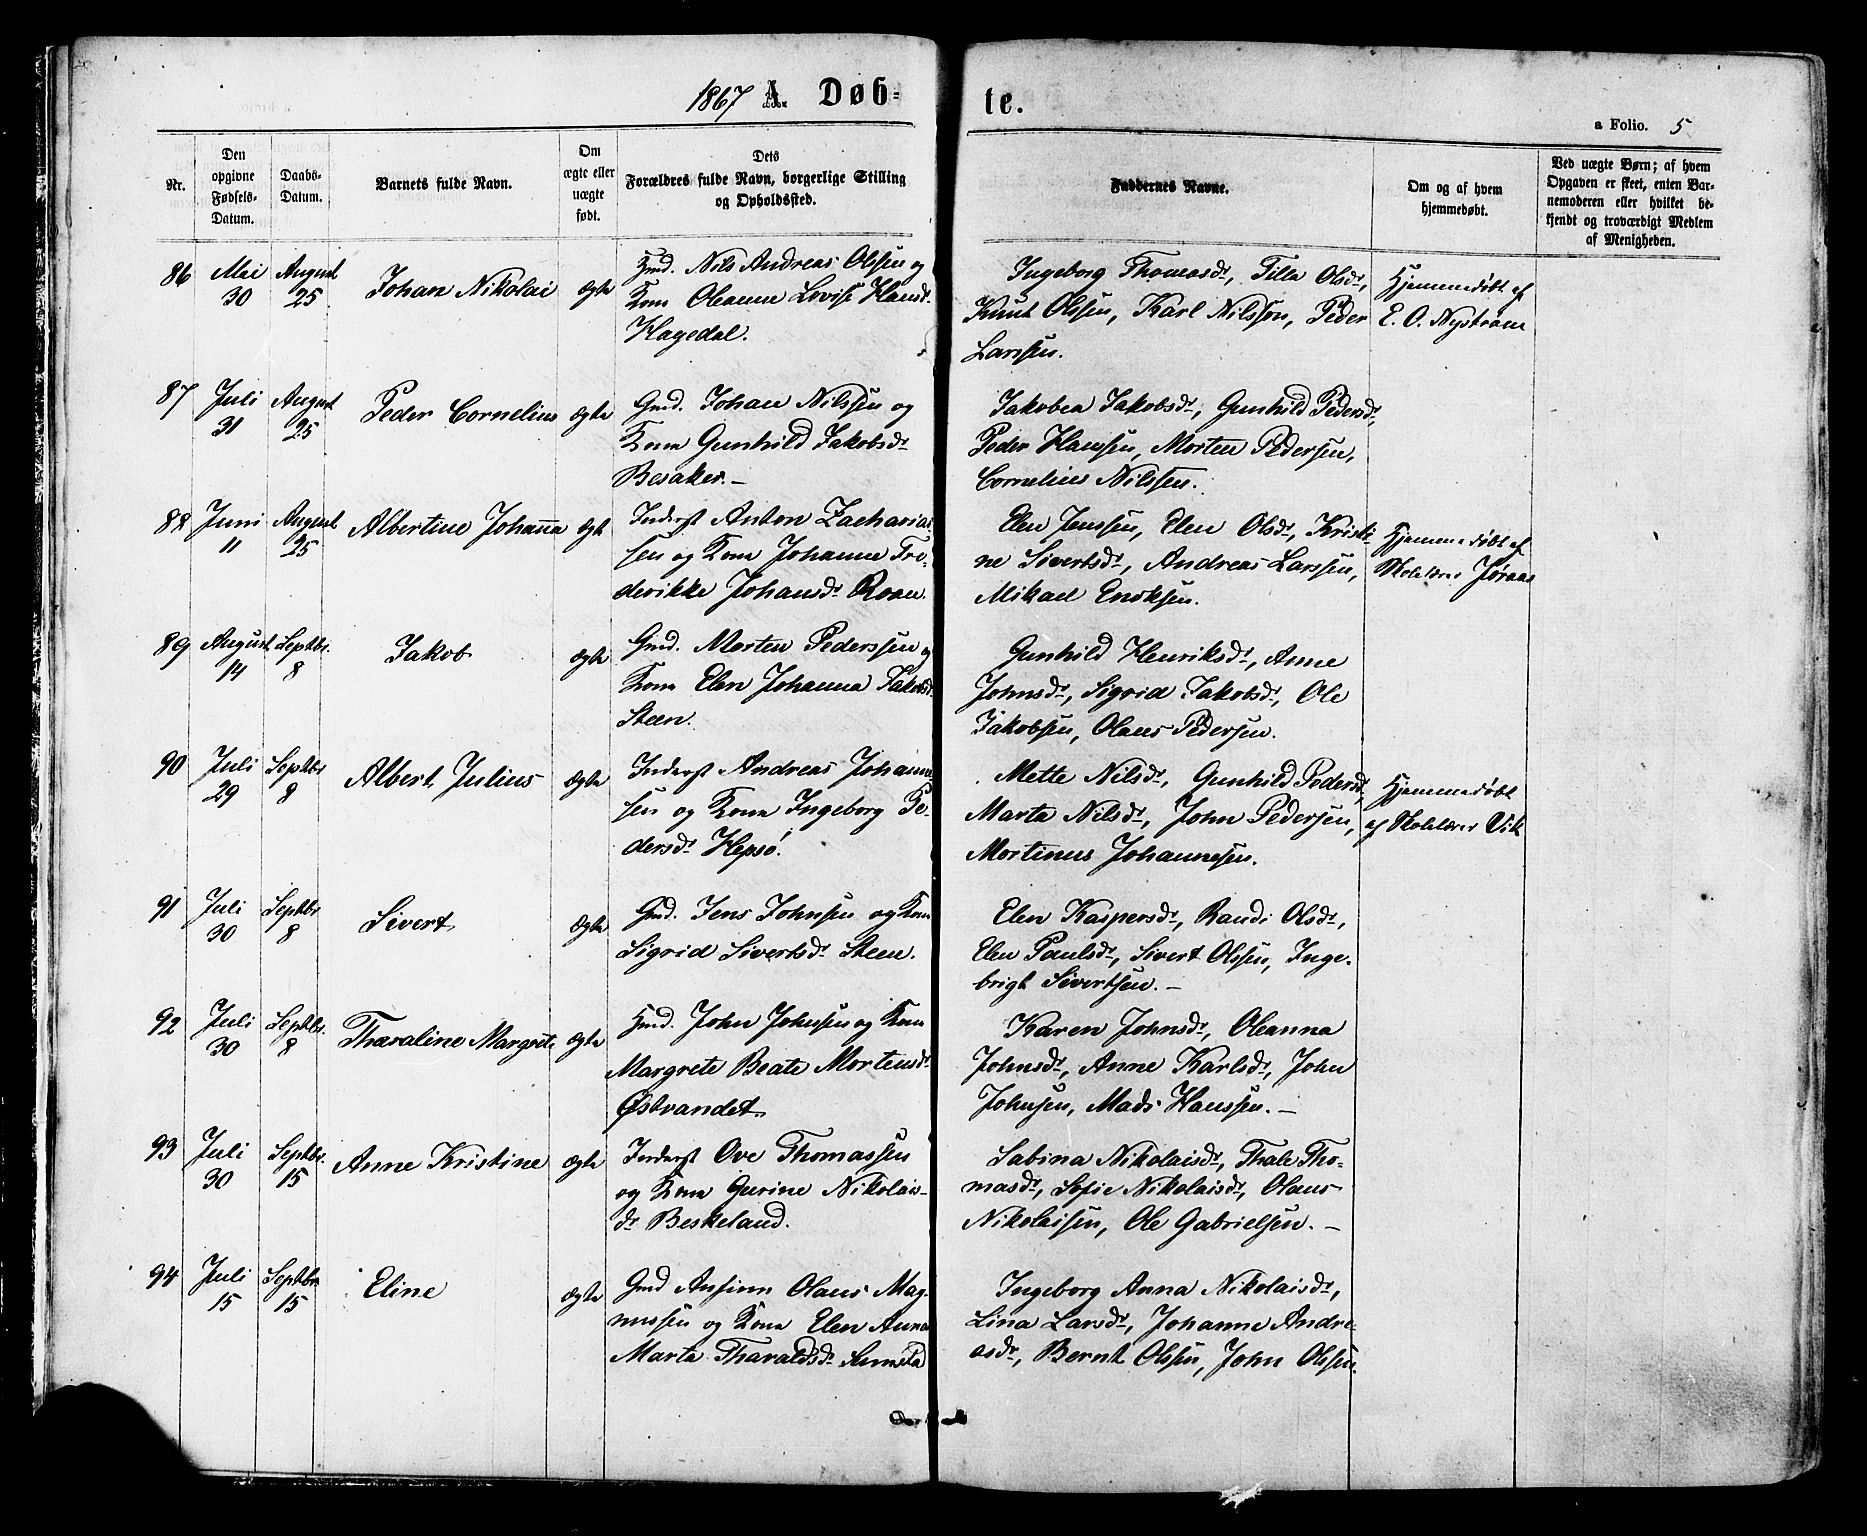 1867 A. Døb-
te.
a Folio. 5
Nr.
Den opgivne Fødsels-Datum.
Daabs-Datum.
Barnets fulde Navn.
Om ægte eller uægte født.
Dets Forældres fulde Navn, borgerlige Stilling og Opholdssted.
Faddernes Navne.
Om og af hvem hjemmedøbt.
Ved uægte Børn; af hvem Opgaven er skeet, enten Bar-nemoderen eller hvilket be-kjendt og troværdigt Medlem af Menigheden.
86 Mai 30 August 25 Johan Nikolai ægte
Hmd. Nils Andreas Olsen og
Kone Oleanne Lovise Hansdr
Hagedal.
Ingeborg Thomasdr, Tilla Olsdr,
Knut Olssen, Karl Nilsson, Peder
Larssen.
Hjemmedøbt af
E. O. Nystrøm
87 Juli 31 August 25 Peder Cornelius ægte
Gmd. Johan Nilssen og
Kone Gunhild Jakobsdr
Besaker. —
Jakobea Jakobsdr, Gunhild Pedersdr,
Peder Hanssen, Morten Pedersen,
Cornelius Nilssen.
88 Juni 11 August 25 Albertine Johanna ægte
Inderst Anton Zacharias-
sen og Kone Johanne Fre-
derikke Johansdr Roan.
Elen Jenssen, Elen Olsdr, Kristi-
ne Sivertsdr, Andreas Larssen,
Mikael Enoksen.
Hjemmedøbt af
Skolelærer Jøraas
89 August 14 Septbr. 8 Jakob ægte
Gmd. Morten Pederssen og
Kone Elen Johanna Jakobsdr
Steen.
Gunhild Henriksdr, Anne
Johnsdr, Sigrid Jakobsdr, Ole
Jakobsen, Olaus Pedersen.
90 Juli 29 Septbr 8 Albert Julius ægte
Inderst Andreas Johanne-
sen og Kone Ingeborg Pe-
dersdr Hepsø.
Mette Nilsdr, Gunhild Pedersdr,
Marta Nilsdr, John Pedersen,
Mortinus Johannesen.
Hjemmedøbt
af Skolelærer Vik
91 Juli 30 Septbr 8 Sivert ægte
Gmd. Jens Johnsen og Kone
Sigrid Sivertsdr Steen.
Elen Kaspersdr, Randi Olsdr,
Elen Paulsdr, Sivert Olssen, Inge-
brigt Sivertsen. —
92 Juli 30 Septbr. 8 Tharaline Margrete ægte
Hmd. John Johnsen og Kone
Margrete Beate Mortensdr
Østvandet.
Karen Johnsdr, Oleanna
Johnsdr, Anne Karlsdr, John
Johnsen, Mads Hanssen. —
93 Juli 30 Septbr. 15 Anne Kristine ægte
Inderst Ove Thomassen
og Kone Gurine Nikolais-
dr Beskeland.
Sabina Nikolaisdr, Thale Tho-
masdr, Sofie Nikolaisdr, Olaus
Nikolaisen, Ole Gabrielsen. —
94 Juli 15 Septbr 15 Eline ægte
Gmd Olaus Mag-
nussen og Kone Elen Anna
Marta Tharaldsdr Sumstad
Ingeborg Anna Nikolaisdr,
Lina Larsdr, Johanne Andre-
asdr, Bernt Olssen, John Olssen.